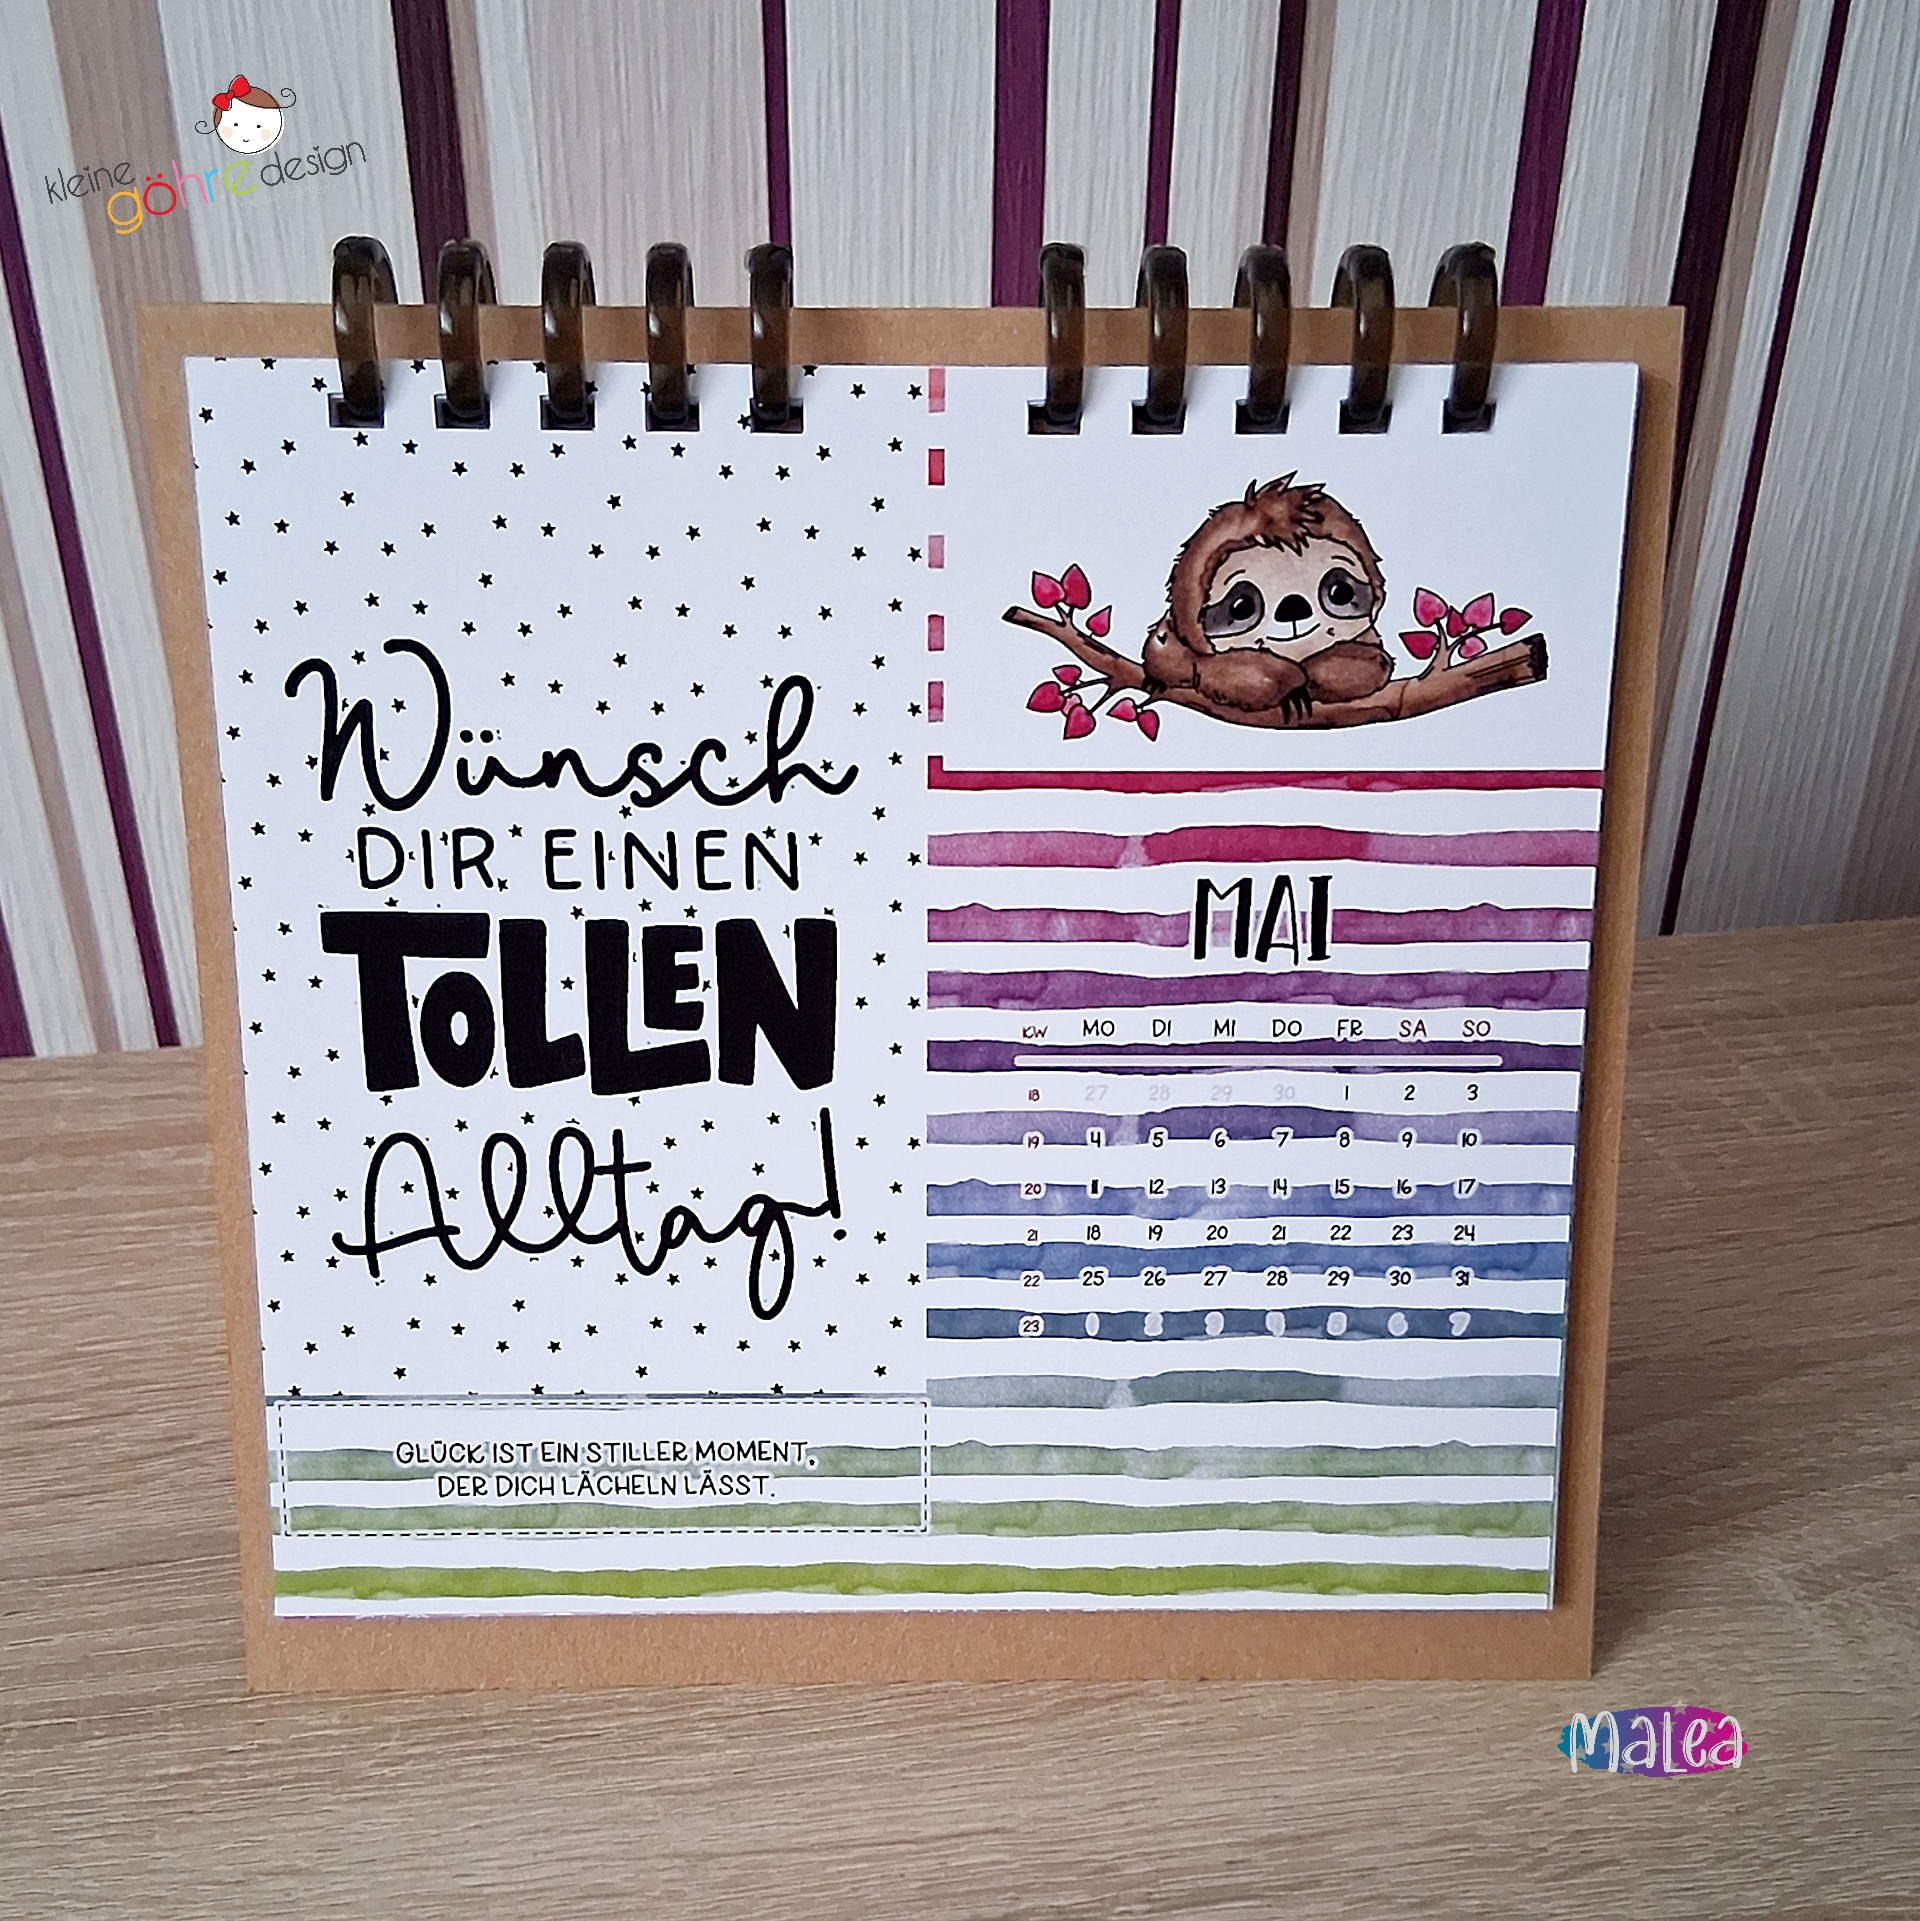 kleine göhre design
Wünsch
DIR EINEN
TOLLEN
Alltag!
GLÜCK IST EIN STILLER MOMENT,
DER DICH LÄCHELN LÄSST.
MAI
KW MO DI MI DO FR SA SO
18 27 28 29 30 1 2 3
19 4 5 6 7 8 9 10
20 11 12 13 14 15 16 17
21 18 19 20 21 22 23 24
22 25 26 27 28 29 30 31
23 1 2 3 4 5 6 7
MaLea